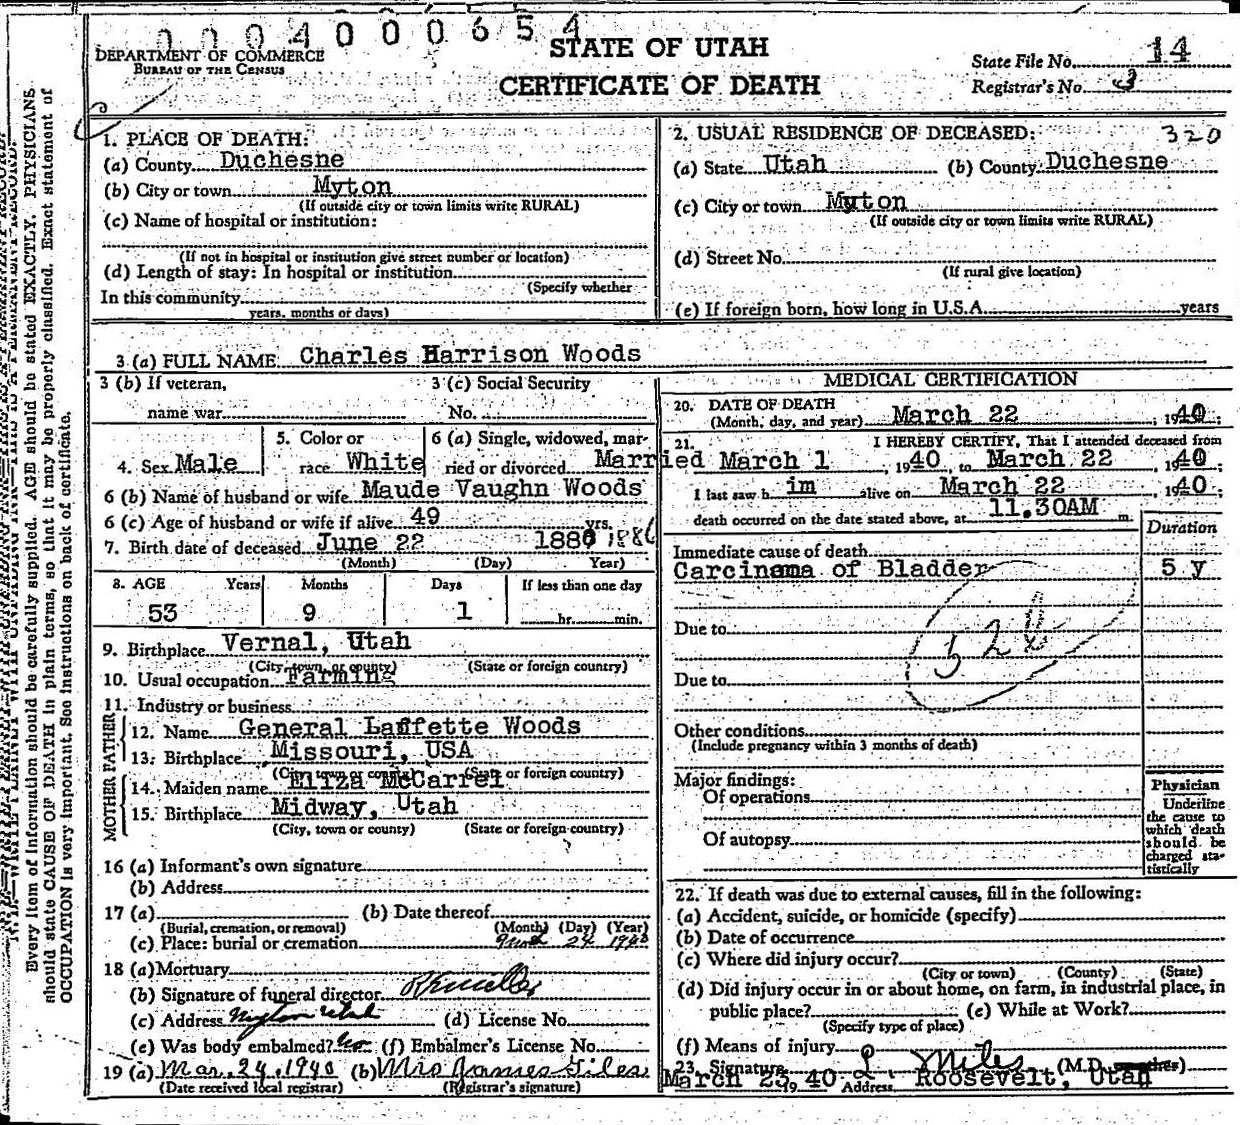 0004000654
DEPARTMENT OF COMMERCE
BUREAU OF THE CENSUS
STATE OF UTAH
CERTIFICATE OF DEATH
State File No. 14
Registrar's No. 3
Every item of information should be carefully supplied. AGE should be stated EXACTLY. PHYSICIANS
should state CAUSE OF DEATH in plain terms, so that it may be properly classified. Exact statement of
OCCUPATION is very important. See instructions on back of certificate.
1. PLACE OF DEATH:
(a) County Duchesne
(b) City or town Myton
(If outside city or town limits write RURAL)
(c) Name of hospital or institution:
(If not in hospital or institution give street number or location)
(d) Length of stay: In hospital or institution
(Specify whether
In this community
years, months or days)
2. USUAL RESIDENCE OF DECEASED: 320
(a) State Utah (b) County Duchesne
(c) City or town Myton
(If outside city or town limits write RURAL)
(d) Street No.
(If rural give location)
(e) If foreign born, how long in U.S.A. years
3 (a) FULL NAME Charles Harrison Woods
3 (b) If veteran, 3 (c) Social Security
name war No.
4. Sex Male 5. Color or race White 6 (a) Single, widowed, married or divorced Married
6 (b) Name of husband or wife Maude Vaughn Woods
6 (c) Age of husband or wife if alive 49 yrs.
7. Birth date of deceased June 22 1886 1886
(Month) (Day) Year)
8. AGE Years Months Days If less than one day
53 9 1 hr. min.
9. Birthplace Vernal, Utah
(City, town, or county) (State or foreign country)
10. Usual occupation Farming
11. Industry or business
FATHER
12. Name General Laffette Woods
13. Birthplace Missouri, USA
(City, town or county) (State or foreign country)
MOTHER
14. Maiden name Eliza McCarrel
15. Birthplace Midway, Utah
(City, town or county) (State or foreign country)
16 (a) Informant's own signature
(b) Address
17 (a) (b) Date thereof
(Burial, cremation, or removal) (Month) (Day) (Year)
(c) Place: burial or cremation 24 1940
18 (a) Mortuary
(b) Signature of funeral director
(c) Address Myton Utah (d) License No.
(e) Was body embalmed? No (f) Embalmer's License No.
19 (a) Mar. 24, 1940 (b) Mrs James Giles
(Date received local registrar) (Registrar's signature)
MEDICAL CERTIFICATION
20. DATE OF DEATH
(Month, day, and year) March 22, 1940;
21. I HEREBY CERTIFY, That I attended deceased from
March 1, 1940, to March 22, 1940;
I last saw him alive on March 22, 1940;
death occurred on the date stated above, at 11.30AM m.
Duration
Immediate cause of death
Carcinama of Bladder 5 y
Due to
Due to
Other conditions
(Include pregnancy within 3 months of death)
Major findings:
Of operations
Of autopsy
Physician
Underline
the cause to
which death
should be
charged sta-
tistically
22. If death was due to external causes, fill in the following:
(a) Accident, suicide, or homicide (specify)
(b) Date of occurrence
(c) Where did injury occur?
(City or town) (County) (State)
(d) Did injury occur in or about home, on farm, in industrial place, in
public place? (e) While at Work?
(Specify type of place)
(f) Means of injury
23. Signature Miles (M.D.
March 23, 1940 Address Roosevelt, Utah